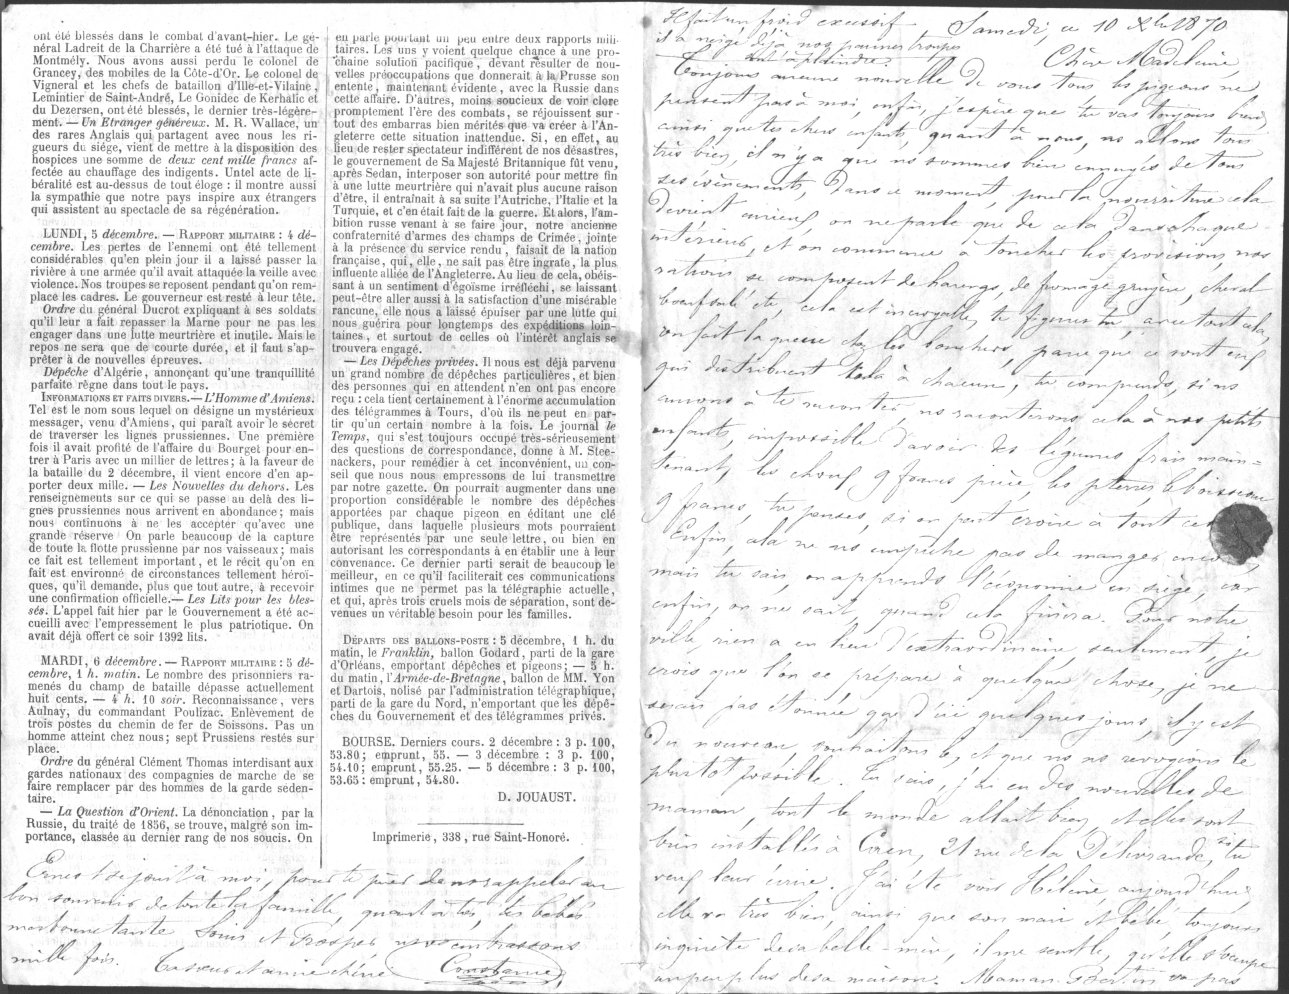 ont été blessés dans le combat d'avant-hier. Le gé-
néral Ladreit de la Charrière a été tué à l'attaque de
Montmély. Nous avons aussi perdu le colonel de
Grancey, des mobiles de la Côte-d'Or. Le colonel de
Vigneral et les chefs de bataillon d'Ille-et-Vilaine,
Lemintier de Saint-André, Le Gonidec de Kerhalic et
du Dezersen, ont été blessés, le dernier très-légère-
ment. — Un Etranger généreux. M. R. Wallace, un
des rares Anglais qui partagent avec nous les ri-
gueurs du siége, vient de mettre à la disposition des
hospices une somme de deux cent mille francs af-
fectée au chauffage des indigents. Untel acte de li-
béralité est au-dessus de tout éloge : il montre aussi
la sympathie que notre pays inspire aux étrangers
qui assistent au spectacle de sa régénération.
LUNDI, 5 décembre. — RAPPORT MILITAIRE : 4 dé-
cembre. Les pertes de l'ennemi ont été tellement
considérables qu'en plein jour il a laissé passer la
rivière à une armée qu'il avait attaquée la veille avec
violence. Nos troupes se reposent pendant qu'on rem-
place les cadres. Le gouverneur est resté à leur tête.
Ordre du général Ducrot expliquant à ses soldats
qu'il leur a fait repasser la Marne pour ne pas les
engager dans une lutte meurtrière et inutile. Mais le
repos ne sera que de courte durée, et il faut s'ap-
prêter à de nouvelles épreuves.
Dépêche d'Algérie, annonçant qu'une tranquillité
parfaite règne dans tout le pays.
INFORMATIONS ET FAITS DIVERS. — L'Homme d'Amiens.
Tel est le nom sous lequel on désigne un mystérieux
messager, venu d'Amiens, qui paraît avoir le secret
de traverser les lignes prussiennes. Une première
fois il avait profité de l'affaire du Bourget pour en-
trer à Paris avec un millier de lettres; à la faveur de
la bataille du 2 décembre, il vient encore d'en ap-
porter deux mille. — Les Nouvelles du dehors. Les
renseignements sur ce qui se passe au delà des li-
gnes prussiennes nous arrivent en abondance; mais
nous continuons à ne les accepter qu'avec une
grande réserve On parle beaucoup de la capture
de toute la flotte prussienne par nos vaisseaux; mais
ce fait est tellement important, et le récit qu'on en
fait est environné de circonstances tellement héroï-
ques, qu'il demande, plus que tout autre, à recevoir
une confirmation officielle. — Les Lits pour les bles-
sés. L'appel fait hier par le Gouvernement a été ac-
cueilli avec l'empressement le plus patriotique. On
avait déjà offert ce soir 1392 lits.
MARDI, 6 décembre. — RAPPORT MILITAIRE : 5 dé-
cembre, 1 h. matin. Le nombre des prisonniers ra-
menés du champ de bataille dépasse actuellement
huit cents. — 4 h. 10 soir. Reconnaissance, vers
Aulnay, du commandant Poulizac. Enlèvement de
trois postes du chemin de fer de Soissons. Pas un
homme atteint chez nous; sept Prussiens restés sur
place.
Ordre du général Clément Thomas interdisant aux
gardes nationaux des compagnies de marche de se
faire remplacer par des hommes de la garde séden-
taire.
— La Question d'Orient. La dénonciation, par la
Russie, du traité de 1856, se trouve, malgré son im-
portance, classée au dernier rang de nos soucis. On
en parle pourtant un peu entre deux rapports mili-
taires. Les uns y voient quelque chance à une pro-
chaine solution pacifique, devant résulter de nou-
velles préoccupations que donnerait à la Prusse son
entente, maintenant évidente, avec la Russie dans
cette affaire. D'autres, moins soucieux de voir clore
promptement l'ère des combats, se réjouissent sur-
tout des embarras bien mérités que va créer à l'An-
gleterre cette situation inattendue. Si, en effet, au
lieu de rester spectateur indifférent de nos désastres,
le gouvernement de Sa Majesté Britannique fût venu,
après Sedan, interposer son autorité pour mettre fin
à une lutte meurtrière qui n'avait plus aucune raison
d'être, il entraînait à sa suite l'Autriche, l'Italie et la
Turquie, et c'en était fait de la guerre. Et alors, l'am-
bition russe venant à se faire jour, notre ancienne
confraternité d'armes des champs de Crimée, jointe
à la présence du service rendu, faisait de la nation
française, qui, elle, ne sait pas être ingrate, la plus
influente alliée de l'Angleterre. Au lieu de cela, obéis-
sant à un sentiment d'égoïsme irréfléchi, se laissant
peut-être aller aussi à la satisfaction d'une misérable
rancune, elle nous a laissé épuiser par une lutte qui
nous guérira pour longtemps des expéditions loin-
taines, et surtout de celles où l'intérêt anglais se
trouvera engagé.
— Les Dépêches privées. Il nous est déjà parvenu
un grand nombre de dépêches particulières, et bien
des personnes qui en attendent n'en ont pas encore
reçu : cela tient certainement à l'énorme accumulation
des télégrammes à Tours, d'où ils ne peut en par-
tir qu'un certain nombre à la fois. Le journal le
Temps, qui s'est toujours occupé très-sérieusement
des questions de correspondance, donne à M. Stee-
nackers, pour remédier à cet inconvénient, un con-
seil que nous nous empressons de lui transmettre
par notre gazette. On pourrait augmenter dans une
proportion considérable le nombre des dépêches
apportées par chaque pigeon en éditant une clé
publique, dans laquelle plusieurs mots pourraient
être représentés par une seule lettre, ou bien en
autorisant les correspondants à en établir une à leur
convenance. Ce dernier parti serait de beaucoup le
meilleur, en ce qu'il faciliterait ces communications
intimes que ne permet pas la télégraphie actuelle,
et qui, après trois cruels mois de séparation, sont de-
venues un véritable besoin pour les familles.
DÉPARTS DES BALLONS-POSTE : 5 décembre, 1 h. du
matin, le Franklin, ballon Godard, parti de la gare
d'Orléans, emportant dépêches et pigeons; — 5 h.
du matin, l'Armée-de-Bretagne, ballon de MM. Yon
et Dartois, nolisé par l'administration télégraphique,
parti de la gare du Nord, n'emportant que les dépê-
ches du Gouvernement et des télégrammes privés.
BOURSE. Derniers cours. 2 décembre : 3 p. 100,
53.80; emprunt, 55. — 3 décembre : 3 p. 100,
54.10; emprunt, 55.25. — 5 décembre : 3 p. 100,
53.65 : emprunt, 54.80.
D. JOUAUST.
Imprimerie, 338, rue Saint-Honoré.
Ernest se joint à moi, pour te prier de nous rappeler au
bon souvenir de toute la famille, quant à toi, tes bébés
ma bonne tante Louis et Prosper nous embrassons
mille fois. Ta sœur et amie chérie Constance
Il fait un froid excessif
il a neigé déjà nos pauvres troupes
sont à plaindre.
Samedi, ce 10 Xbre 1870
Chère Madeleine,
Toujours aucune nouvelle de vous tous les pigeons ne
pensent pas à moi enfin, j'espère que tu vas toujours bien,
ainsi que tes chers enfants, quant à nous, ns allons tous
très bien, il n'y a que ns sommes bien ennuyés de tous
ses évènements, Dans ce moment, pour la nourriture cela
devient curieux, on ne parle que de cela dans chaque
intérieur, et on commence à toucher les provisions, nos
rations se composent de harengs, de fromage gruyère, cheval
bœuf salé etc, cela est incroyable, te figures tu, avec tout cela,
on fait la queue chez les bouchers, parce que ce sont eux
qui distribuent cela à chacun, tu comprends, si ns
aurons à te raconter ns raconterons cela à nos petits
enfants, impossible d'avoir des légumes frais main=
tenant, les choux 9 francs pièce, les pterres le boisseau
9 francs, tu penses, si on peut croire à tout ce
Enfin, cela ne ns empêche pas de manger encore,
mais tu sais, on apprend l'économie en siège, car
enfin, on ne sait, quand cela finira. Pour notre
ville, rien a eu lieu d'extraordinaire, seulement, je
crois que l'on se prépare à quelque chose, je ne
serais pas étonnée que d'ici quelques jours, il y est
du nouveau, souhaitons le, et que ns ns revoyions le
plus tôt possible. Tu sais, j'ai eu des nouvelles de
maman tout le monde allait bien, et elles sont
bien installés à Caen, 21 rue de la Délivrande, si tu
veux leur écrire. J'ai été voir Hélène, aujourd'hui,
elle va très bien, ainsi que son mari et bébé, toujours
inquiète de sa belle-mère, il me semble, qu'elle s'occupe
un peu plus de sa maison. Maman Bertin va pas